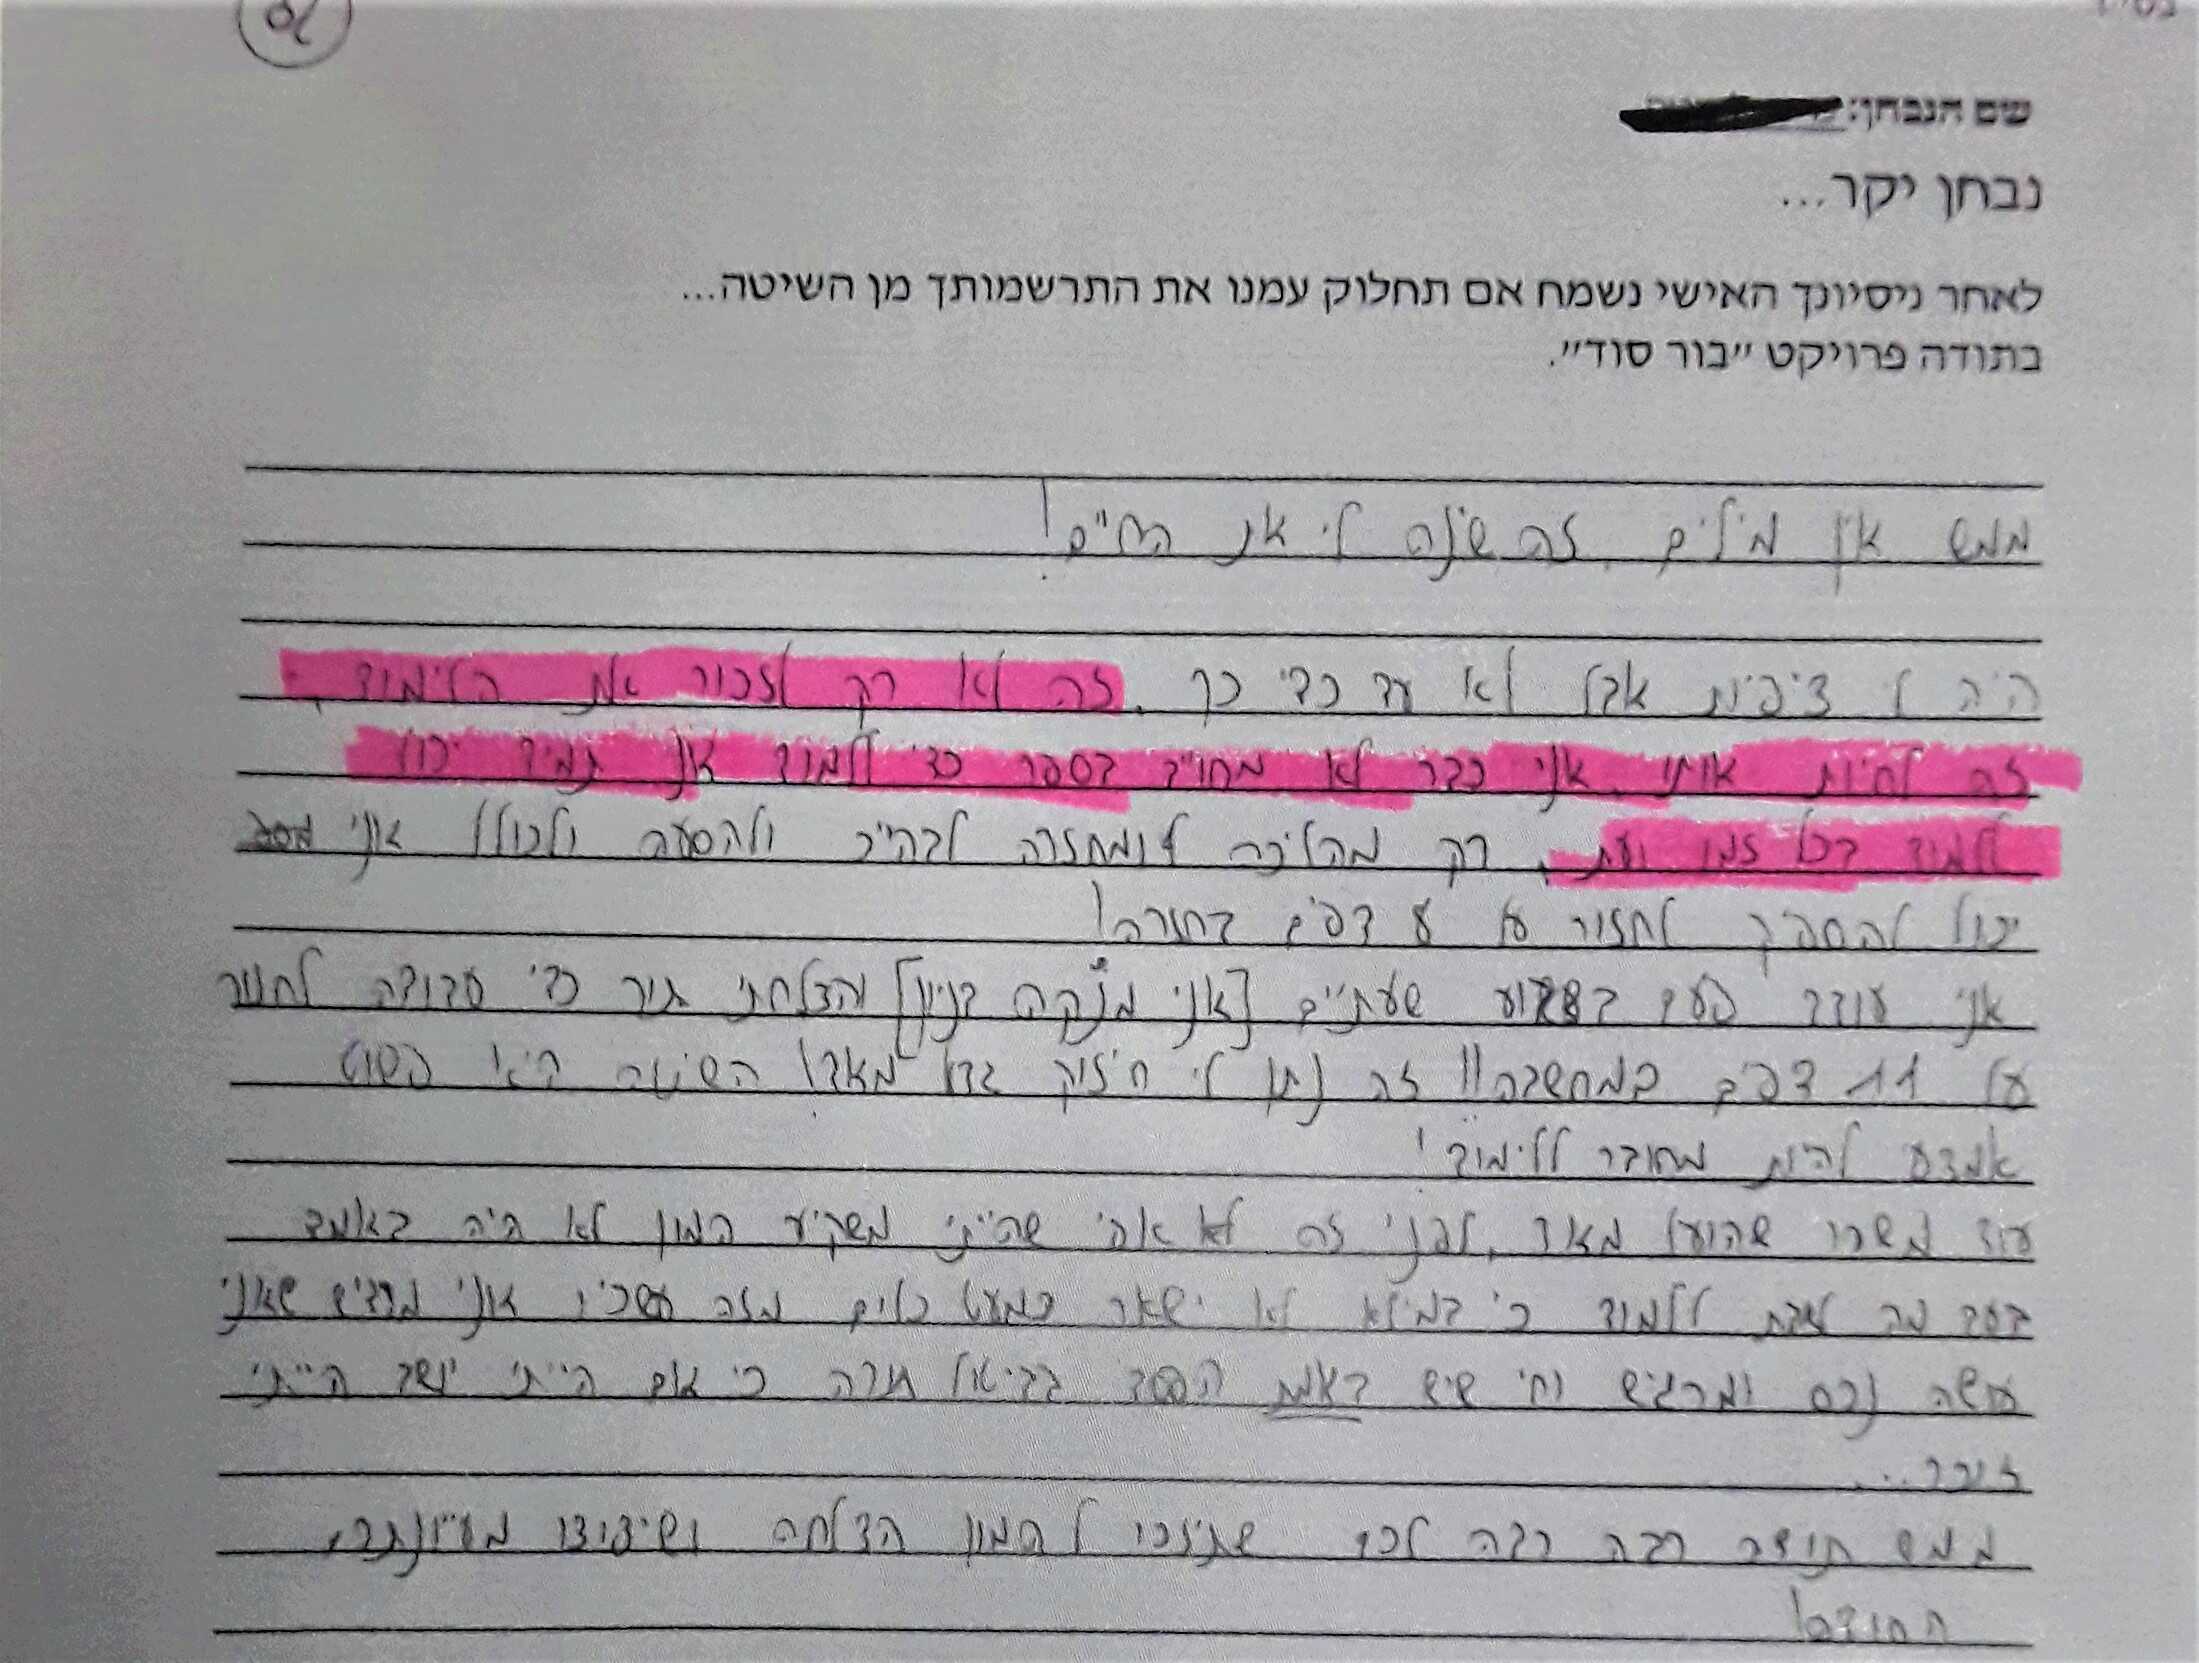 בס״ד
שם הנבחן:
נבחן יקר...
לאחר ניסיונך האישי נשמח אם תחלוק עמנו את התרשמותך מן השיטה...
בתודה פרויקט ״בור סוד״.
ממש אין מילים. זה שינה לי את החיים!
היה לי ציפית אבל לא עד כדי כך. זה לא רק לזכור את הלימוד,
זה לחיות אותו. אני כבר לא מחוייב בספר כדי ללמוד אני תמיד יכול
ללמוד בכל זמן ועת. רק מהליכה ומחזרה לביה״כ ולהסעה ולכולל אני
יכול להספיק לחזור על דפים בחזרה!
אני עובד פעם בשבוע שעתיים [אני מנקה בניין] והצלחתי תוך כדי עבודה לחזור
על 11 דפים במחשבה!! זה נתן לי חיזוק גדול מאד! השיטה היא פשוט
אמצעי להיות מחובר ללימוד!
עוד משהו שהועיל מאד, לפני זה לא שהייתי משקיע המון לא היה באמת
בשב מה ללמוד כי במילא לא ישאר כמעט כלום מזה עכשיו אני מרגיש שאני
עושה נכס ומרגיש וחי שיש באמת הפסד בביטול תורה כי אם הייתי יושב הייתי
זוכר...
ממש תודה רבה רבה לכם שתזכו להמון הצלחה ושיפוצו מעיינותיכם
החוצה!